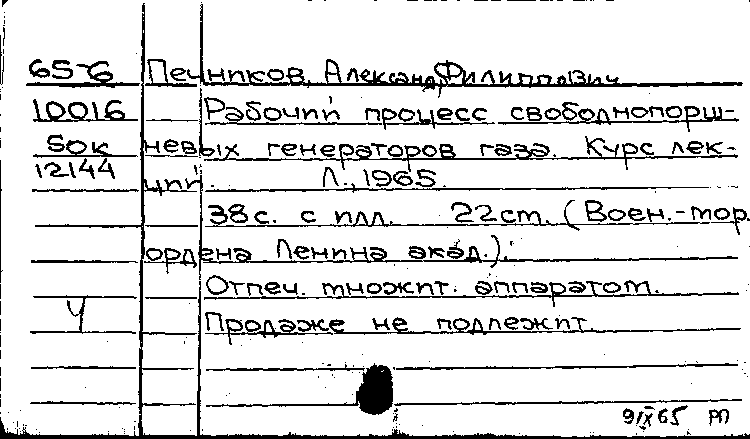 65-6 Печников, Александр Филиппович
10016 Рабочий процесс свободнопорш-
50к невых генераторов газа. Курс лек-
12144 ций. Л., 1965.
38с. с илл. 22см. (Воен.-мор.
ордена Ленина акад.).
Отпеч. множит. аппаратом.
Ч Продаже не подлежит.
9/IX 65 РП